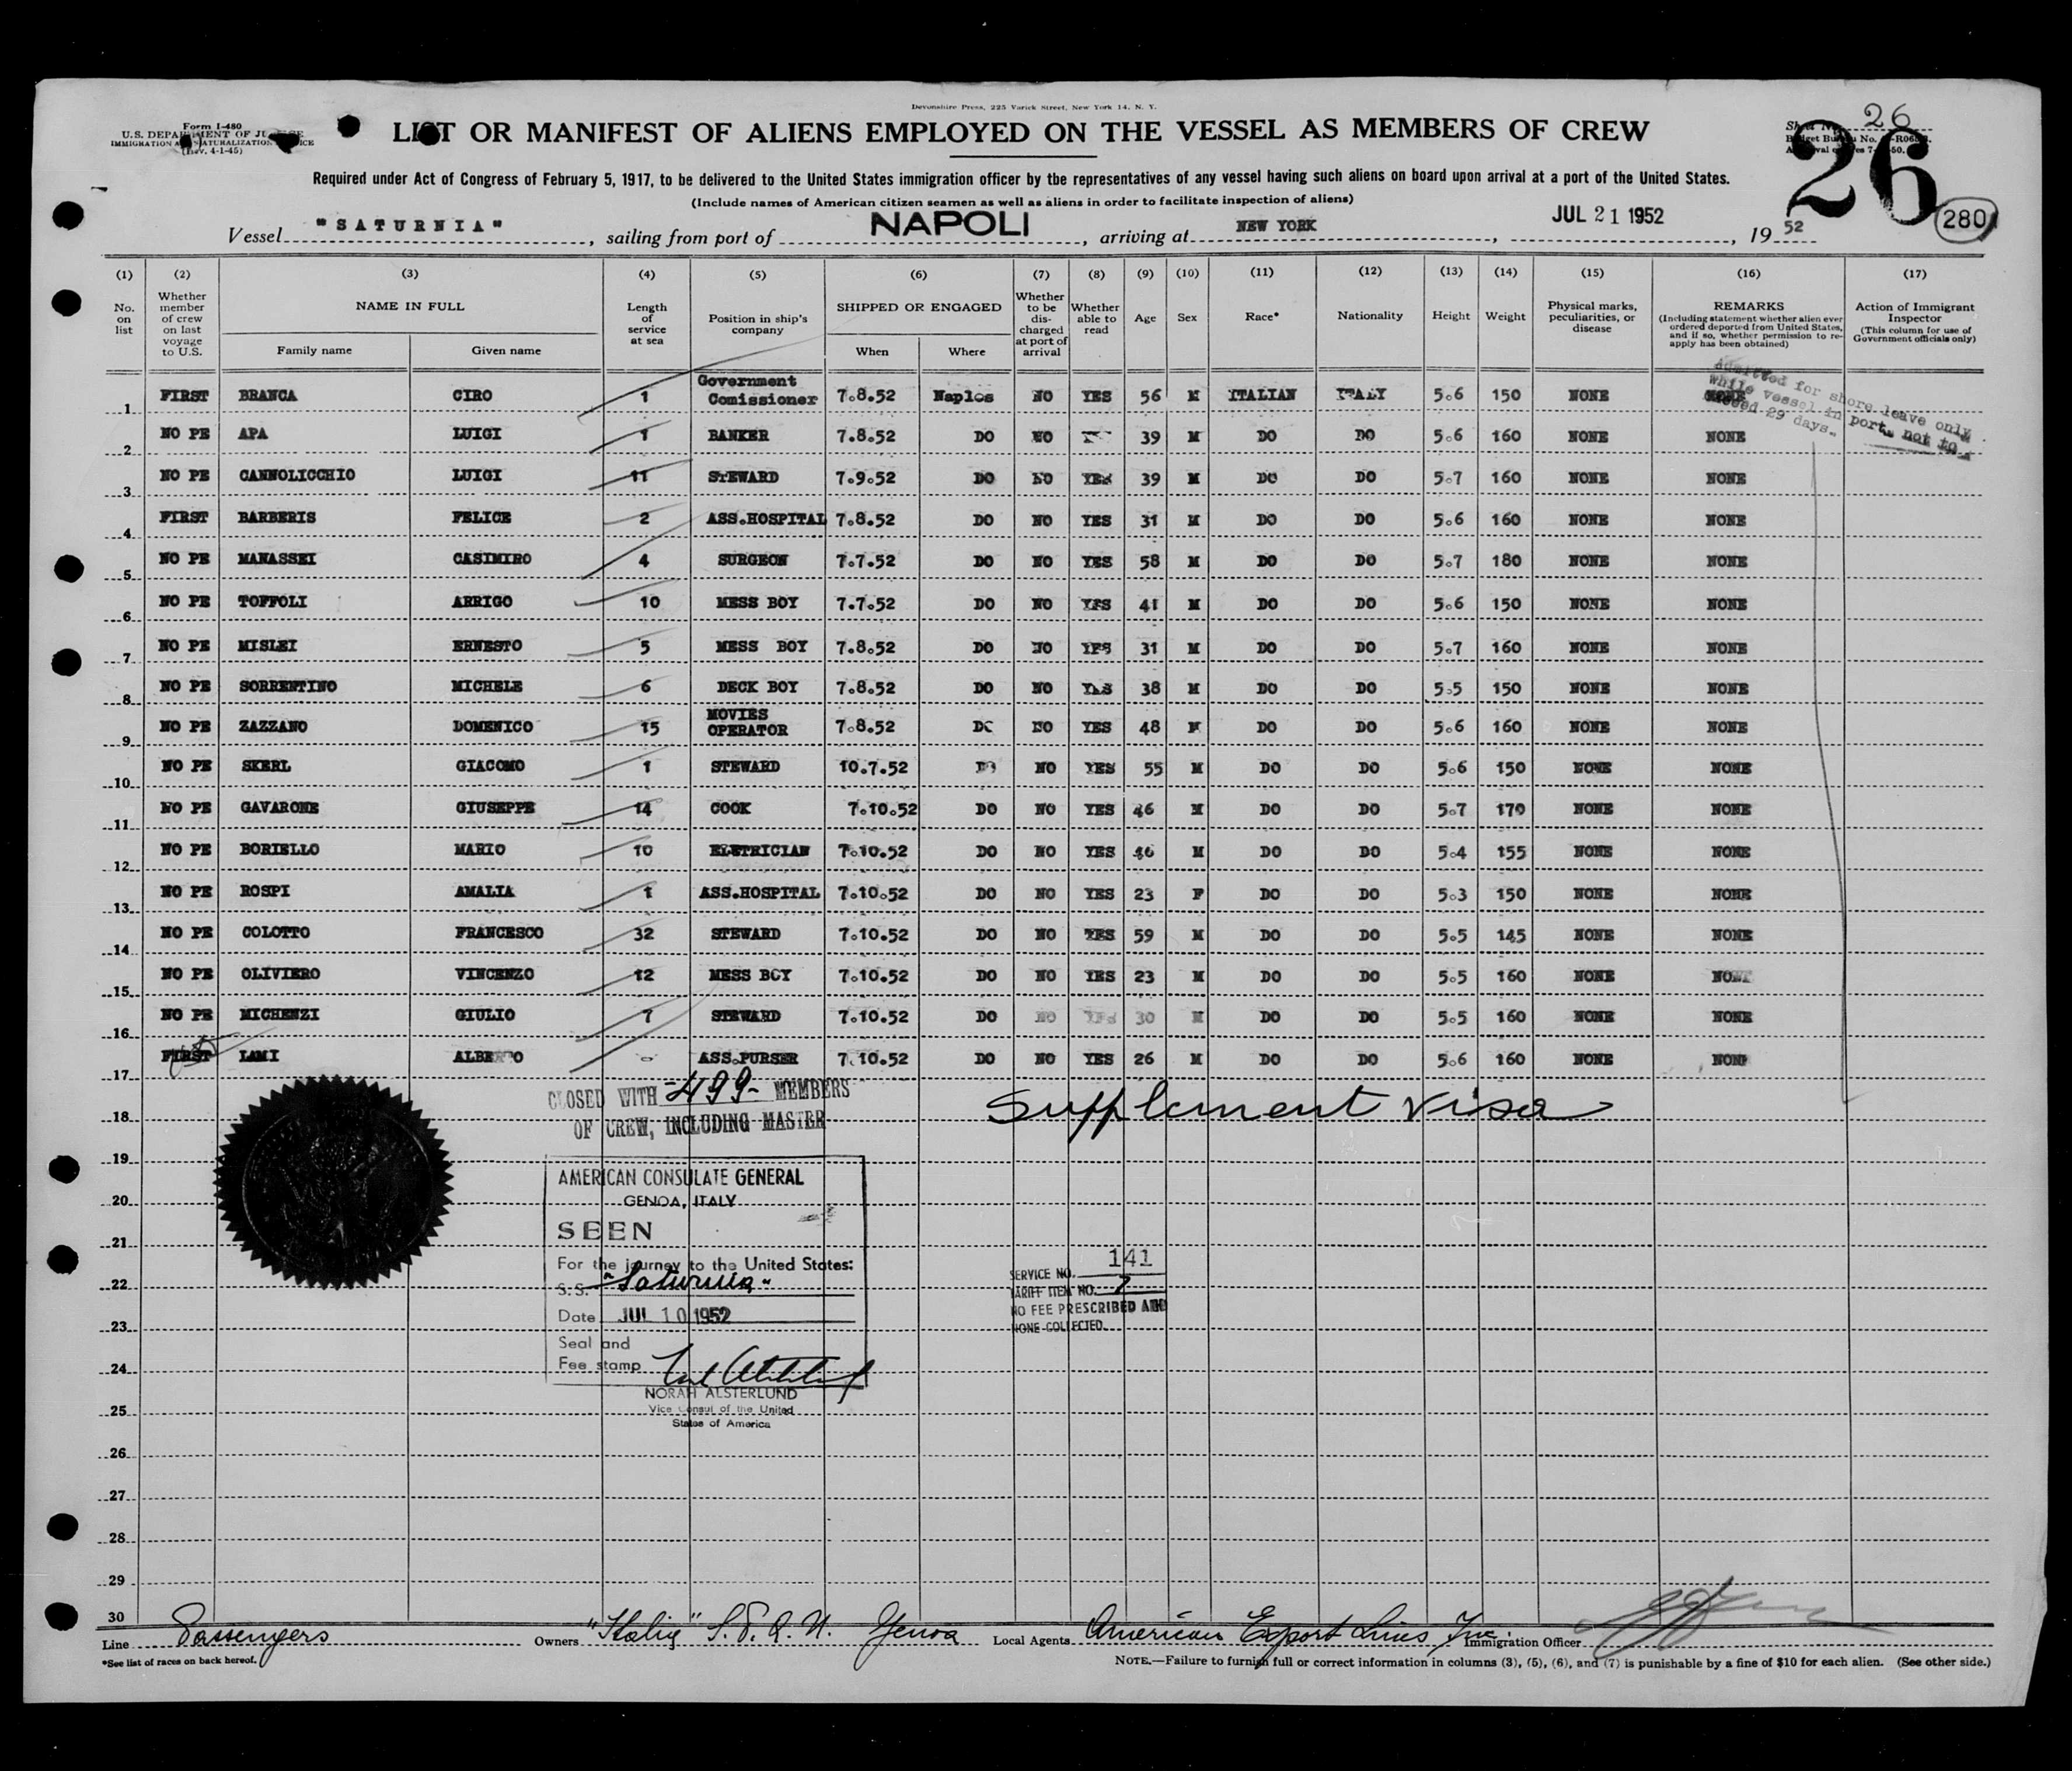 Devonshire Press, 225 Varick Street, New York 14, N. Y.
Form I-480
U.S. DEPARTMENT OF JUSTICE
IMMIGRATION AND NATURALIZATION SERVICE
(Rev. 4-1-45)
LIST OR MANIFEST OF ALIENS EMPLOYED ON THE VESSEL AS MEMBERS OF CREW
26
Sheet No.
Budget Bureau No.
Approval expires 7- -50.
26
280
Required under Act of Congress of February 5, 1917, to be delivered to the United States immigration officer by the representatives of any vessel having such aliens on board upon arrival at a port of the United States.
(Include names of American citizen seamen as well as aliens in order to facilitate inspection of aliens)
Vessel "SATURNIA", sailing from port of NAPOLI, arriving at NEW YORK, JUL 21 1952, 19 52
(1) (2) (3) (4) (5) (6) (7) (8) (9) (10) (11) (12) (13) (14) (15) (16) (17)
No. on list
Whether member of crew on last voyage to U.S.
NAME IN FULL
Family name Given name
Length of service at sea
Position in ship's company
SHIPPED OR ENGAGED
When Where
Whether to be discharged at port of arrival
Whether able to read
Age
Sex
Race*
Nationality
Height
Weight
Physical marks, peculiarities, or disease
REMARKS
(Including statement whether alien ever ordered deported from United States, and if so, whether permission to reapply has been obtained)
Action of Immigrant Inspector
(This column for use of Government officials only)
Admitted for shore leave only
while vessel in port, not to
exceed 29 days.
1 FIRST BRANCA CIRO 1 Government Comissioner 7.8.52 Naples NO YES 56 M ITALIAN ITALY 5.6 150 NONE NONE
2 NO PE APA LUIGI 1 BANKER 7.8.52 DO NO 39 M DO DO 5.6 160 NONE NONE
3 NO PE CANNOLICCHIO LUIGI 11 STEWARD 7.9.52 DO NO YES 39 M DO DO 5.7 160 NONE NONE
4 FIRST BARBERIS FELICE 2 ASS.HOSPITAL 7.8.52 DO NO YES 31 M DO DO 5.6 160 NONE NONE
5 NO PE MANASSEI CASIMIRO 4 SURGEON 7.7.52 DO NO YES 58 M DO DO 5.7 180 NONE NONE
6 NO PE TOFFOLI ARRIGO 10 MESS BOY 7.7.52 DO NO YES 41 M DO DO 5.6 150 NONE NONE
7 NO PE MISLEI ERNESTO 5 MESS BOY 7.8.52 DO NO YES 31 M DO DO 5.7 160 NONE NONE
8 NO PE SORRENTINO MICHELE 6 DECK BOY 7.8.52 DO NO YES 38 M DO DO 5.5 150 NONE NONE
9 NO PE ZAZZANO DOMENICO 15 MOVIES OPERATOR 7.8.52 DO NO YES 48 M DO DO 5.6 160 NONE NONE
10 NO PE SKERL GIACOMO 1 STEWARD 10.7.52 DO NO YES 55 M DO DO 5.6 150 NONE NONE
11 NO PE GAVARONE GIUSEPPE 14 COOK 7.10.52 DO NO YES 46 M DO DO 5.7 170 NONE NONE
12 NO PE BORIELLO MARIO 10 ELETRICIAN 7.10.52 DO NO YES 46 M DO DO 5.4 155 NONE NONE
13 NO PE ROSPI AMALIA 1 ASS.HOSPITAL 7.10.52 DO NO YES 23 F DO DO 5.3 150 NONE NONE
14 NO PE COLOTTO FRANCESCO 32 STEWARD 7.10.52 DO NO YES 59 M DO DO 5.5 145 NONE NONE
15 NO PE OLIVIERO VINCENZO 12 MESS BOY 7.10.52 DO NO YES 23 M DO DO 5.5 160 NONE NONE
16 NO PE MICHENZI GIULIO 7 STEWARD 7.10.52 DO NO YES 30 M DO DO 5.5 160 NONE NONE
17 FIRST LAMI ALBERTO - ASS.PURSER 7.10.52 DO NO YES 26 M DO DO 5.6 160 NONE NONE
CLOSED WITH -499- MEMBERS
OF CREW, INCLUDING MASTER
Supplement visa
18
19
20
21
22
23
24
25
26
27
28
29
30
AMERICAN CONSULATE GENERAL
GENOA, ITALY
SEEN
For the journey to the United States:
S.S. "Saturnia"
Date JUL 10 1952
Seal and
Fee stamp
NORAH ALSTERLUND
Vice Consul of the United
States of America
SERVICE NO. 141
TARIFF ITEM NO. 7
NO FEE PRESCRIBED AND
NONE COLLECTED.
Line Passengers Owners "Italia" S.P.A.N. Genoa Local Agents American Export Lines Inc. Immigration Officer
*See list of races on back hereof.
NOTE.—Failure to furnish full or correct information in columns (3), (5), (6), and (7) is punishable by a fine of $10 for each alien. (See other side.)